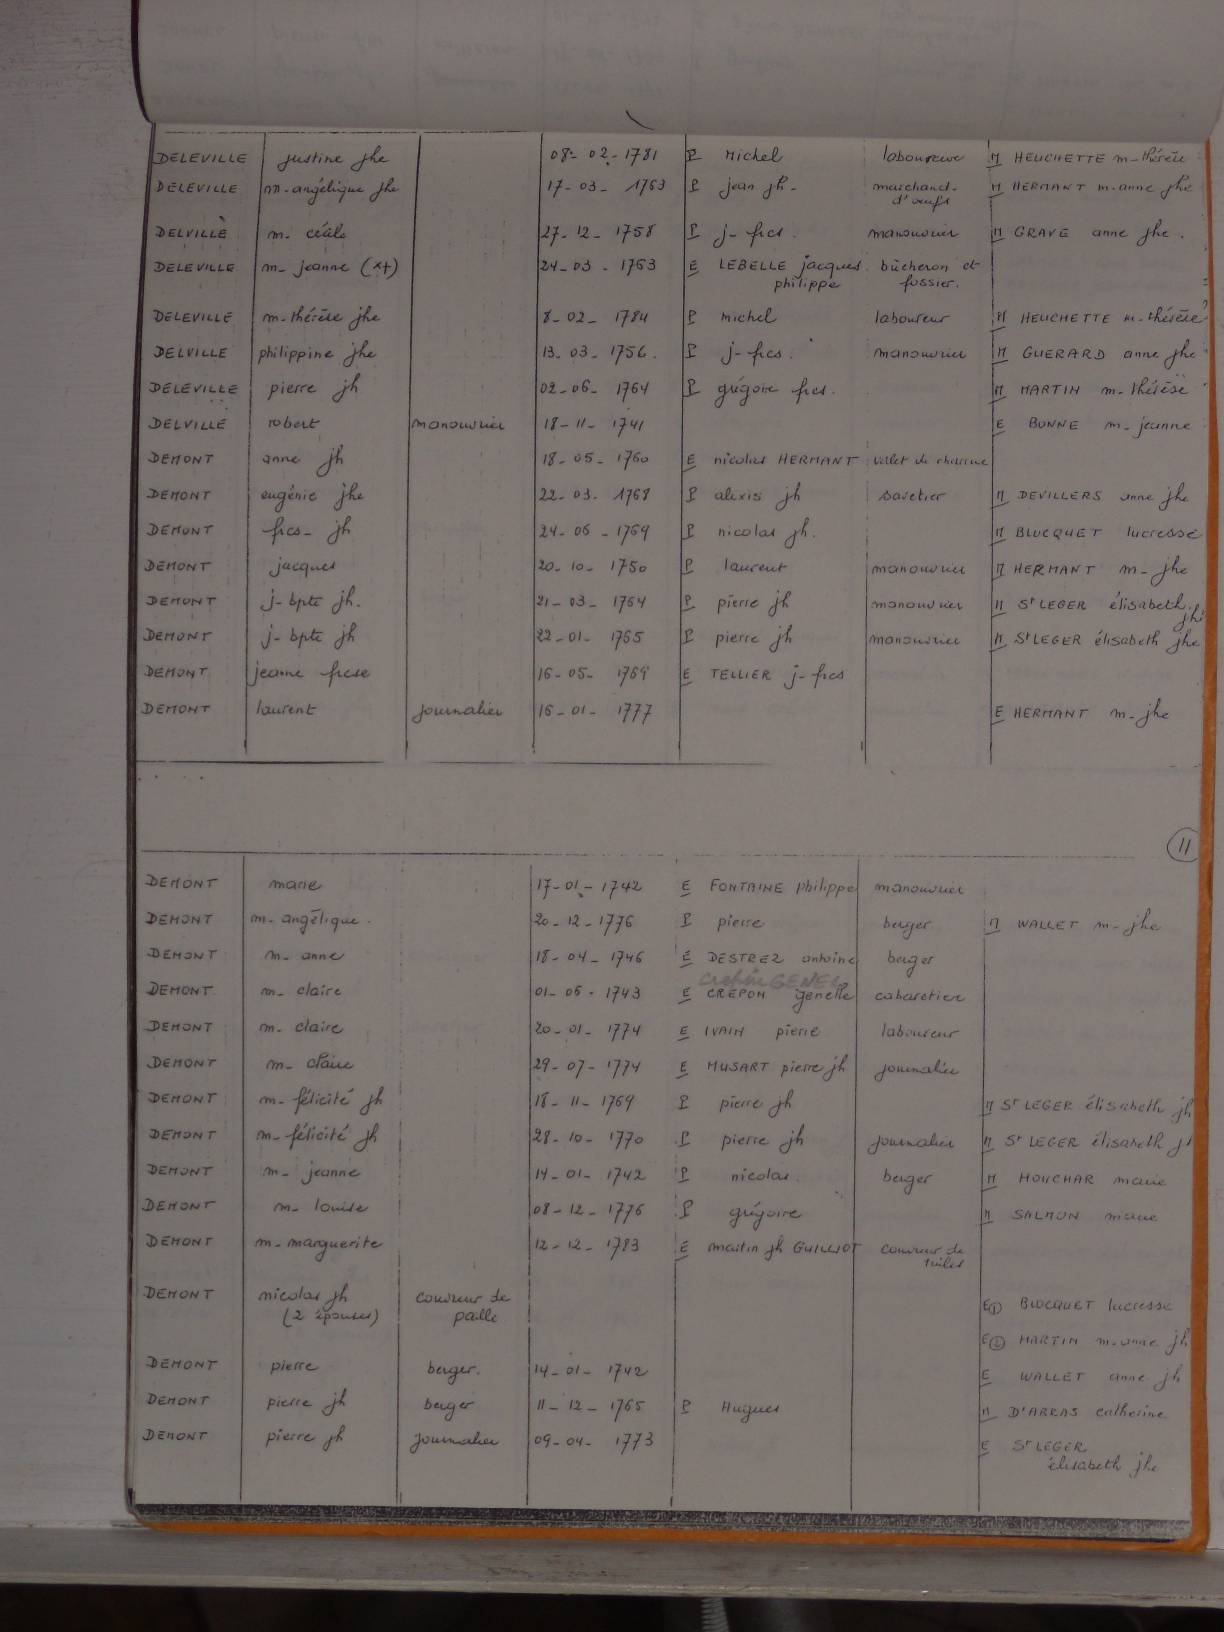 DELEVILLE justine jhe 08-02-1781 P Michel laboureur M HEUCHETTE m-thérèse
DELEVILLE m-angélique jhe 17-03-1763 P jean jh- marchand d'oeufs M HERMANT m-anne jhe
DELVILLE m- 27-12-1758 P j-fres. manouvrier M GRAVE anne jhe.
DELEVILLE m-jeanne (x+) 24-03-1763 E LEBELLE jacques philippe bûcheron et fossier.
DELEVILLE m-thérèse jhe 8-02-1784 P michel laboureur M HEUCHETTE m-thérèse
DELVILLE philippine jhe 13-03-1756. P j-fcs. manouvrier M GUERARD anne jhe
DELEVILLE pierre jh 02-06-1764 P grégoire fcs. M MARTIN m-thérèse
DELVILLE robert manouvrier 18-11-1741 E BONNE m-jeanne
DEMONT anne jh 18-05-1760 E nicolas HERMANT valet de charrue
DEMONT eugénie jhe 22-03-1768 P alexis jh savetier M DEVILLERS anne jhe
DEMONT fcs-jh 24-06-1769 P nicolas jh. M BLOCQUET lucresse
DEMONT jacques 20-10-1750 P laurent manouvrier M HERMANT m-jhe
DEMONT j-bpte jh. 21-03-1764 P pierre jh manouvrier M St LEGER élisabeth jhe
DEMONT j-bpte jh 22-01-1765 P pierre jh manouvrier M St LEGER élisabeth jhe
DEMONT jeanne fcse 16-05-1769 E TELLIER j-fcs
DEMONT laurent journalier 16-01-1777 E HERMANT m-jhe
11
DEMONT marie 17-01-1742 E FONTAINE philippe manouvrier
DEMONT m-angélique. 20-12-1776 P pierre berger M WALLET m-jhe
DEMONT m-anne 18-04-1746 E DESTREZ antoine berger
DEMONT m-claire 01-06-1743 E CREPON genelle cabaretier
DEMONT m-claire 20-01-1774 E IVAIN pierre laboureur
DEMONT m-claire 29-07-1774 E MUSART pierre jh journalier
DEMONT m-félicité jh 18-11-1769 P pierre jh M St LEGER élisabeth jh
DEMONT m-félicité jh 28-10-1770 P pierre jh journalier M St LEGER élisabeth
DEMONT m-jeanne 14-01-1742 P nicolas. berger M HOUCHAR marie
DEMONT m-louise 08-12-1776 P grégoire M SALMON marie
DEMONT m-marguerite 12-12-1783 E martin jh GUILLIOT couvreur de tuiles
DEMONT nicolas jh couvreur de E① BLOCQUET lucresse
(2 épouses) paille
E② MARTIN m-anne jh
DEMONT pierre berger. 14-01-1742 E WALLET anne jh
DEMONT pierre jh berger 11-12-1765 P Hugues M D'ARRAS catherine
DEMONT pierre jh journalier 09-04-1773 E St LEGER
élisabeth jhe